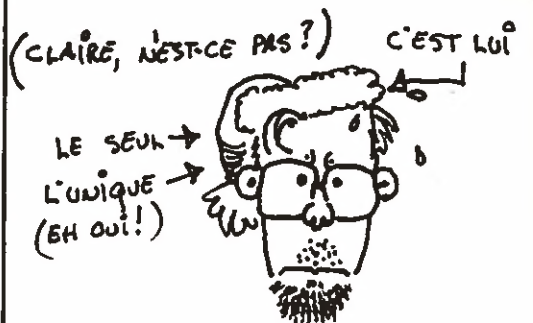 (CLAIRE, N'EST-CE PAS?)
C'EST LUI
LE SEUL
L'UNIQUE
(EH OUI!)